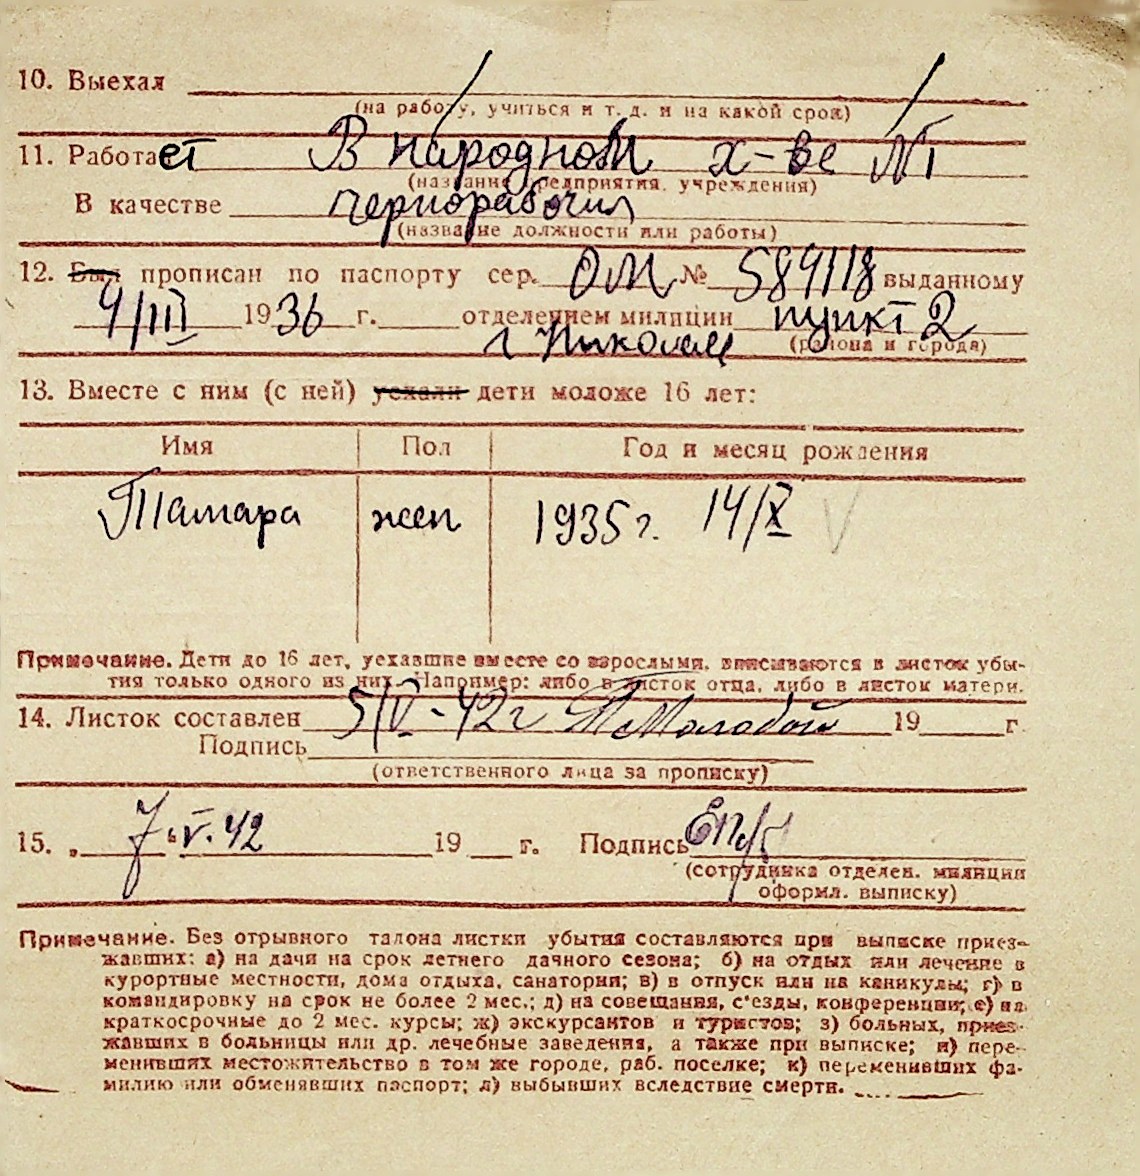 10. Выехал
(на работу, учиться и т. д. и на какой срок)
11. Работает В народном х-ве №1
(название предприятия, учреждения)
В качестве чернорабочил
(название должности или работы)
12. Был прописан по паспорту сер. ОМ № 589118 выданному
4/III 1936 г. отделением милиции пункт 2
г Николаев (района и города)
13. Вместе с ним (с ней) уехали дети моложе 16 лет:
Имя Пол Год и месяц рождения
Тамара жен 1935 г. 14/X V
Примечание. Дети до 16 лет, уехавшие вместе со взрослыми, вписываются в листок убы-
тия только одного из них. Например: либо в листок отца, либо в листок матери.
14. Листок составлен 5/V-42 г Молодой 19 г.
Подпись
(ответственного лица за прописку)
15. „ 7.V.42 19 г. Подпись
(сотрудника отделен. милиции
оформл. выписку)
Примечание. Без отрывного талона листки убытия составляются при выписке приез-
жавших: а) на дачи на срок летнего дачного сезона; б) на отдых или лечение в
курортные местности, дома отдыха, санатории; в) в отпуск или на каникулы; г) в
командировку на срок не более 2 мес.; д) на совещания, с'езды, конференции; е) на
краткосрочные до 2 мес. курсы; ж) экскурсантов и туристов; з) больных, приез-
жавших в больницы или др. лечебные заведения, а также при выписке; и) пере-
менивших местожительство в том же городе, раб. поселке; к) переменивших фа-
милию или обменявших паспорт; л) выбывших вследствие смерти.